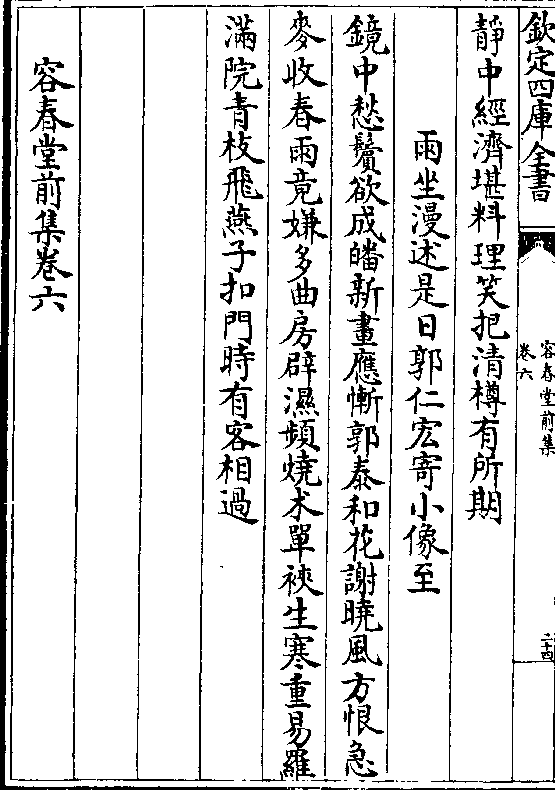 欽定四庫全書
容春堂前集
卷六
二十四
靜中經濟堪料理笑把清樽有所期
雨坐漫述是日郭仁宏寄小像至
鏡中愁鬢欲成皤新畫應慚郭泰和花謝曉風方恨急
麥收春雨竟嫌多曲房辟濕頻燒术單裌生寒重易羅
滿院青枝飛燕子扣門時有客相過
容春堂前集卷六